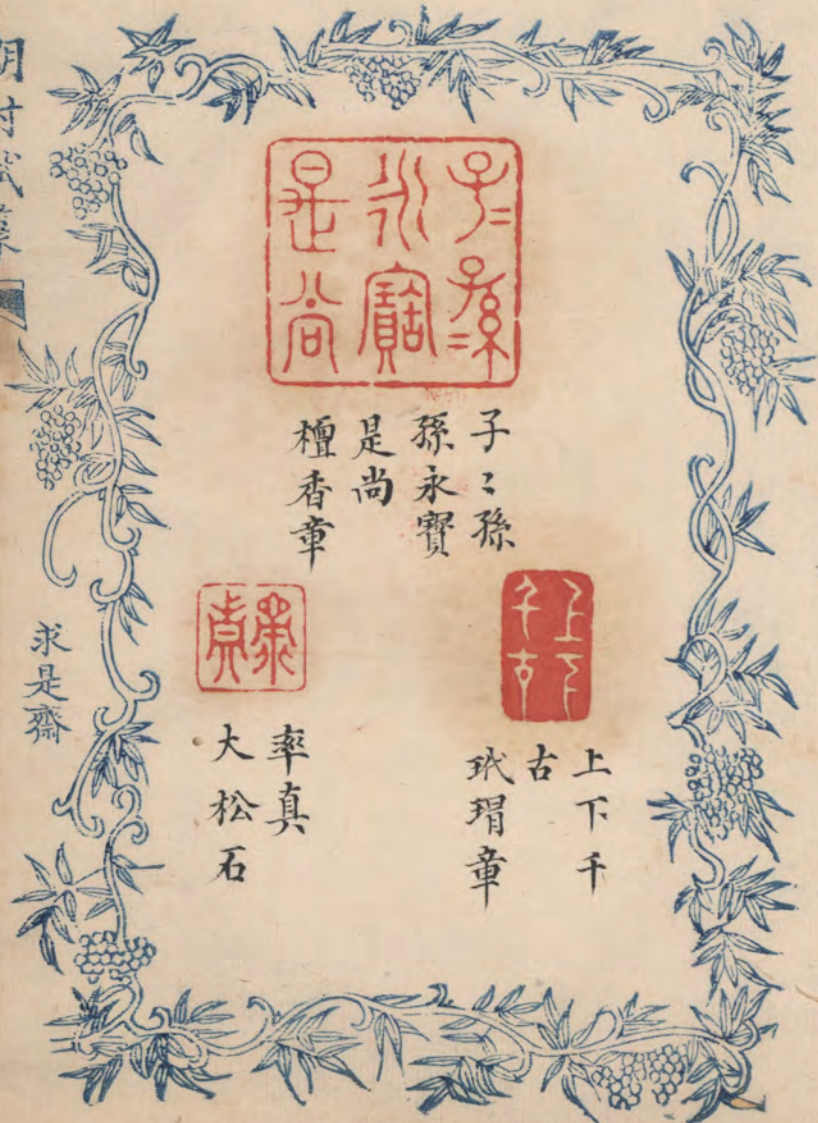 子〻孫〻
永寶
是尚
子〻孫
孫永寶
是尚
檀香章
上下
千古
上下千
古
玳瑁章
率
真
率真
大松石
求是齋